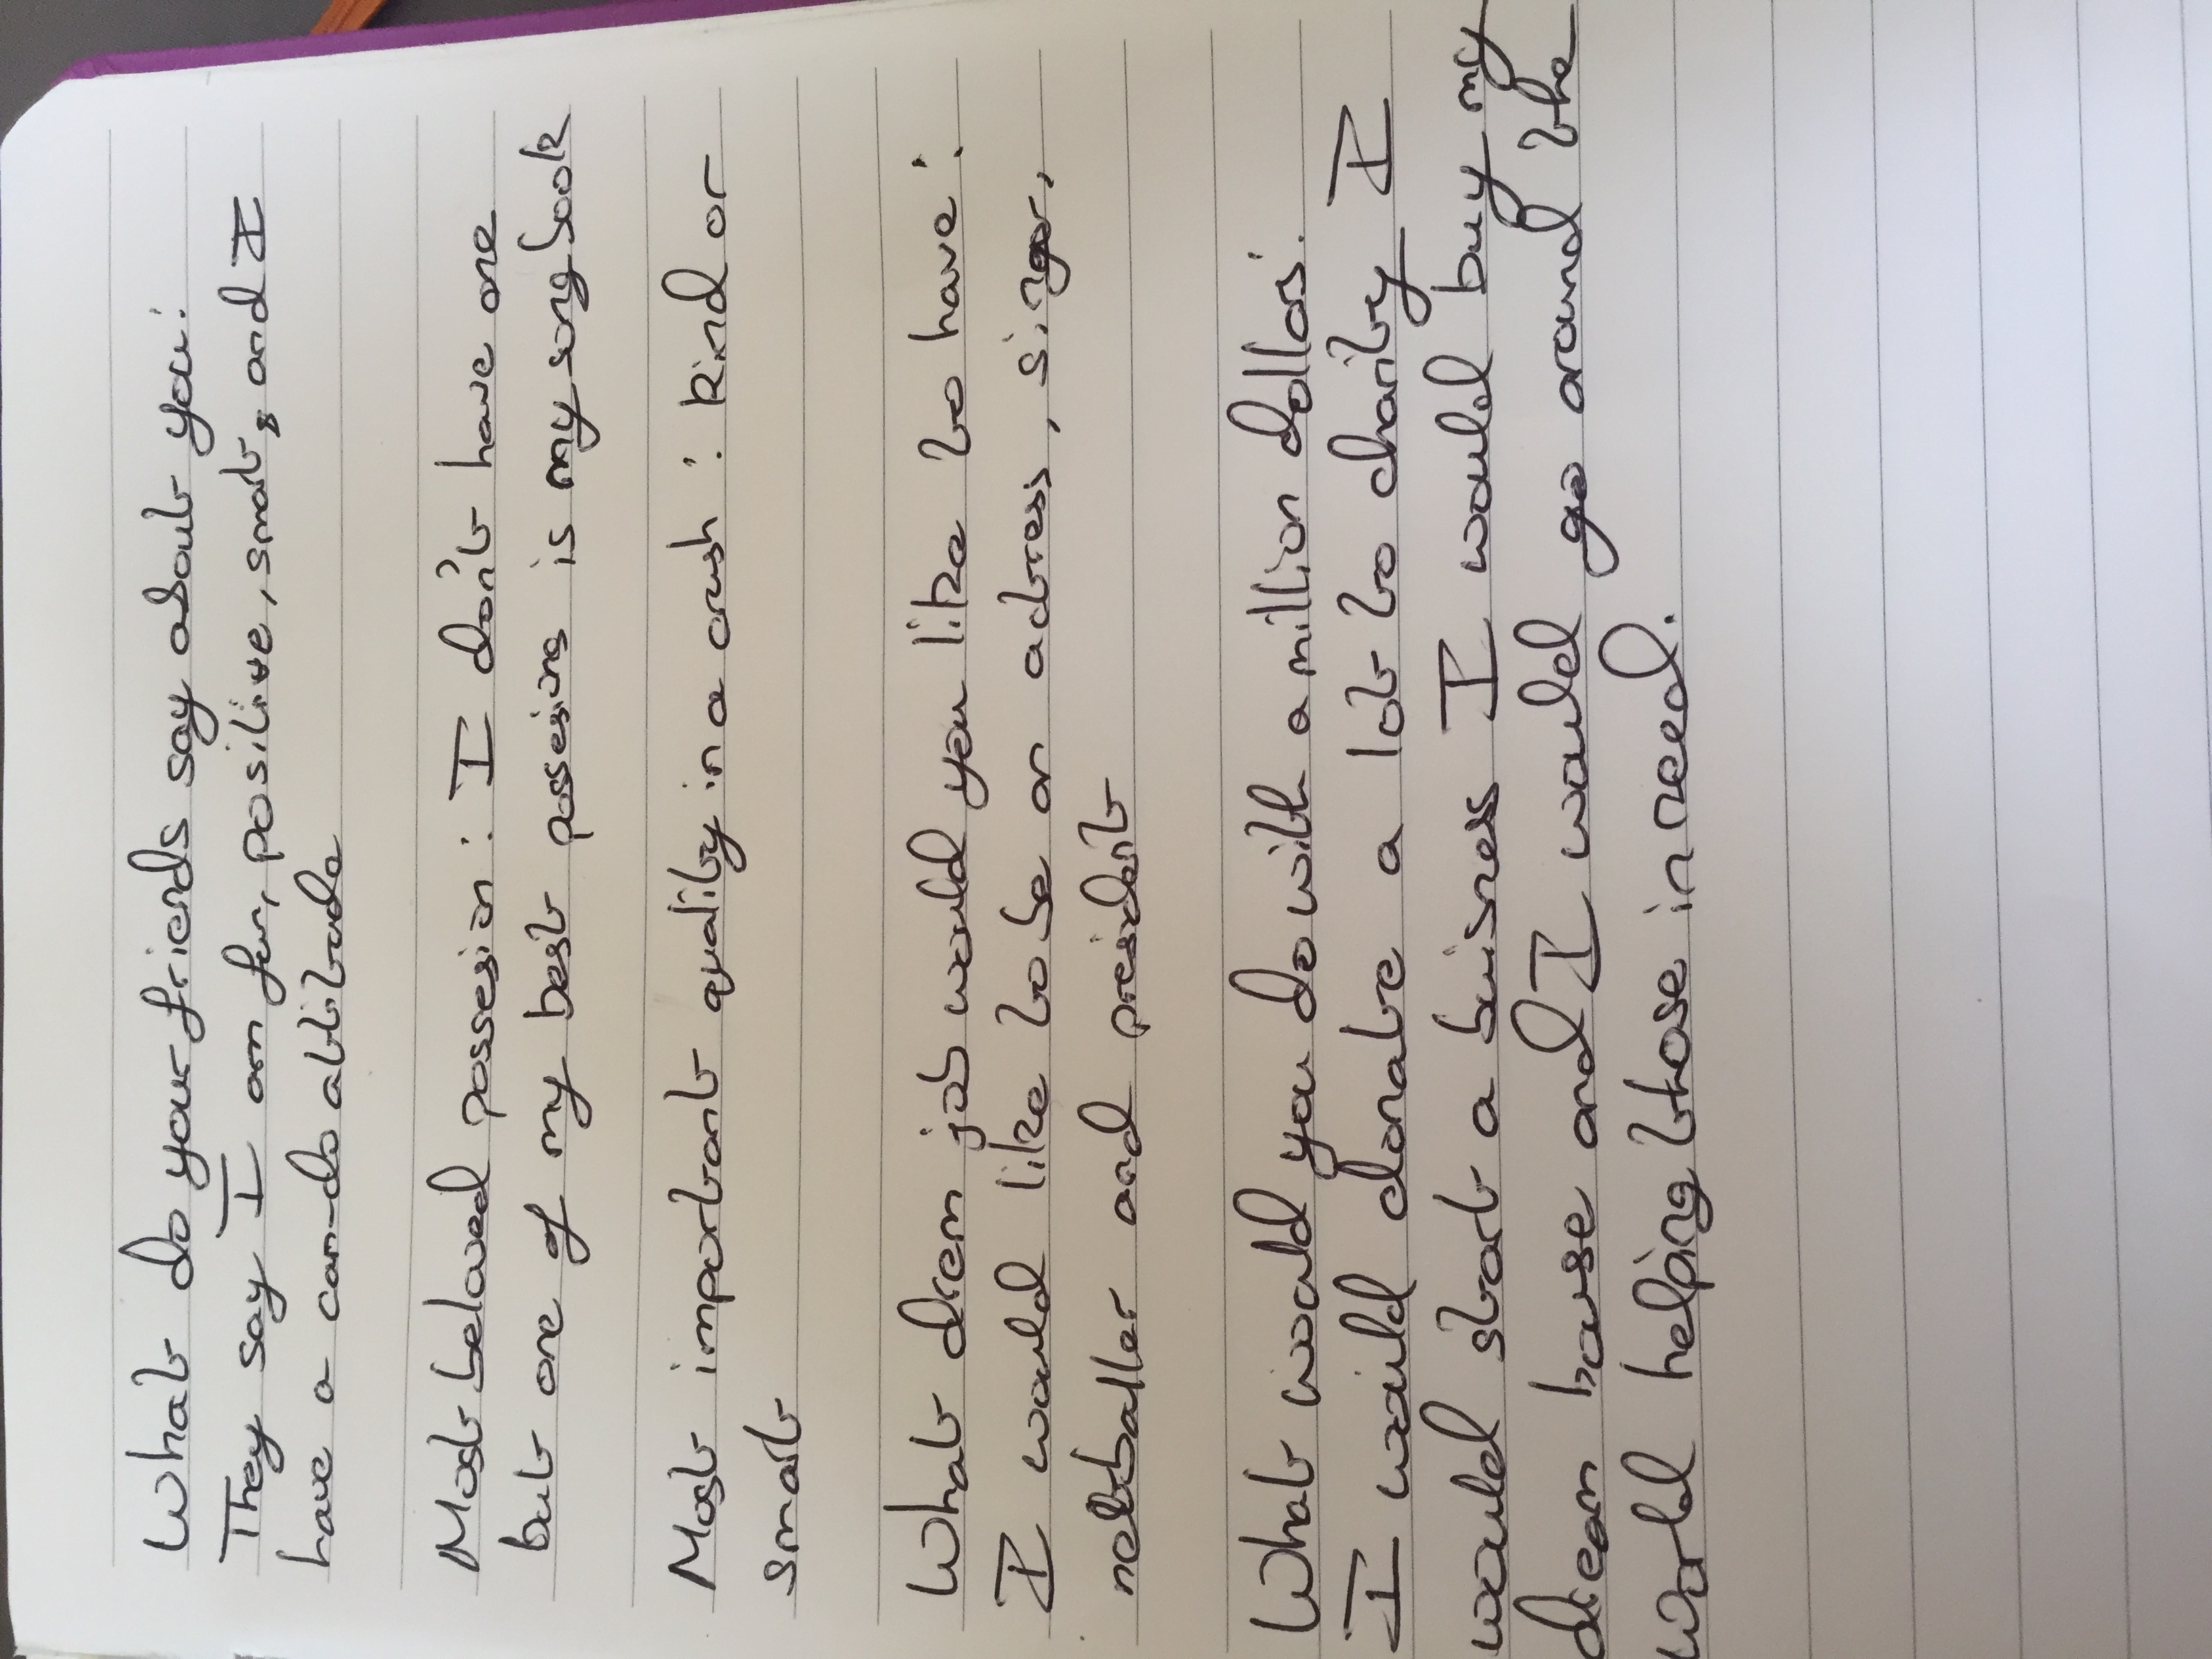 What do your friends say about you:
They say I am fun, positive, smart, and I
have a can-do attitude
Most beloved possesion: I don't have one
but one of my best possesions is my songbook
Most important quality in a crush: kind or
smart
What dream job would you like to have:
I would like to be an actress, singer,
netballer and president
What would you do with a million dollas:
I would donate a lot to charity I
would start a buisness I would buy my
dream house and I would go around the
world helping those in need.